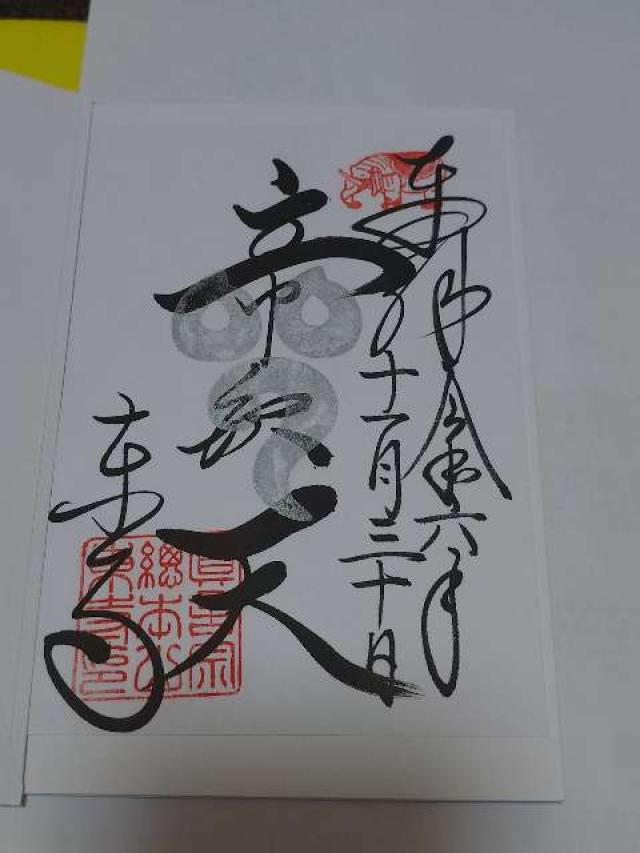 奉拝 令和六年
十一月三十日
帝釈天
東寺
真言宗
總本山
東寺印